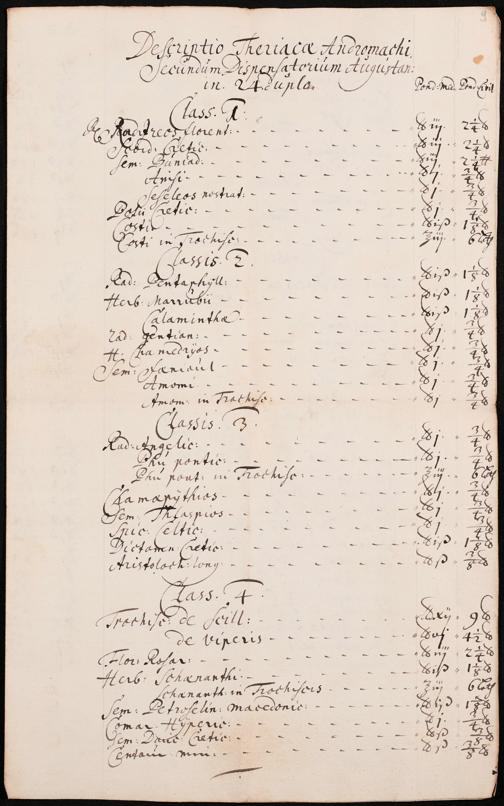 9
Descriptio Theriacæ Andromachi
Secundum Dispensatorium Augustan:
in 24 dupla.
Pond: Med. Pond: Civil
Class. 1.
℞ Rad: Ireos florent: ℔iij 2 1/4 ℔
Scord: Cretic. ℔iij 2 1/4 ℔
Sem: Buniad: ℔iij 2 1/4 ℔
Anisi ℔j 3/4 ℔
Seseleos nostrat: ℔j 3/4 ℔
Polii Cretic: ℔j 3/4 ℔
Costi ℔iß 1 1/8 ℔
Costi in Trochisc: ℥iij 6 loth
Classis. 2.
Rad: Pentaphyll: ℔iß 1 1/8 ℔
Herb: Marrubii ℔iß 1 1/8 ℔
Calaminthæ ℔iß 1 1/8 ℔
Rad: Gentian: ℔j 3/4 ℔
H. Chamedryos ℔j 3/4 ℔
Sem: fœniculi ℔j 3/4 ℔
Amomi ℔j 3/4 ℔
Amom: in Trochisc: ℔j 3/4 ℔
Classis. 3.
Rad: Angelic: ℔j 3/4 ℔
Phu pontic: ℔j 3/4 ℔
Phu pont: in Trochisc: ℥iij 6 loth
Chamæpythios ℔j 3/4 ℔
Sem: Thlaspios ℔j 3/4 ℔
Spic: Celtic: ℔j 3/4 ℔
Dictamn Cretic: ℔iß 1 1/8 ℔
Aristoloch: long: ℔ß 3/8 ℔
Class. 4.
Trochisc: de Scill: ℔xij 9 ℔
de viperis ℔vj 4 1/2 ℔
Flor: Rosar: ℔iij 2 1/4 ℔
Herb: Schænanthi ℔iß 1 1/8 ℔
Schænanth: in Trochiscis ℥iij 6 loth
Sem: Petroselin: Macedonic: ℔iß 1 1/8 ℔
Comar: Hyperic: ℔j 3/4 ℔
Sem: Dauc: Cretic: ℔ß 3/8 ℔
Centaur: min: ℔ß 3/8 ℔